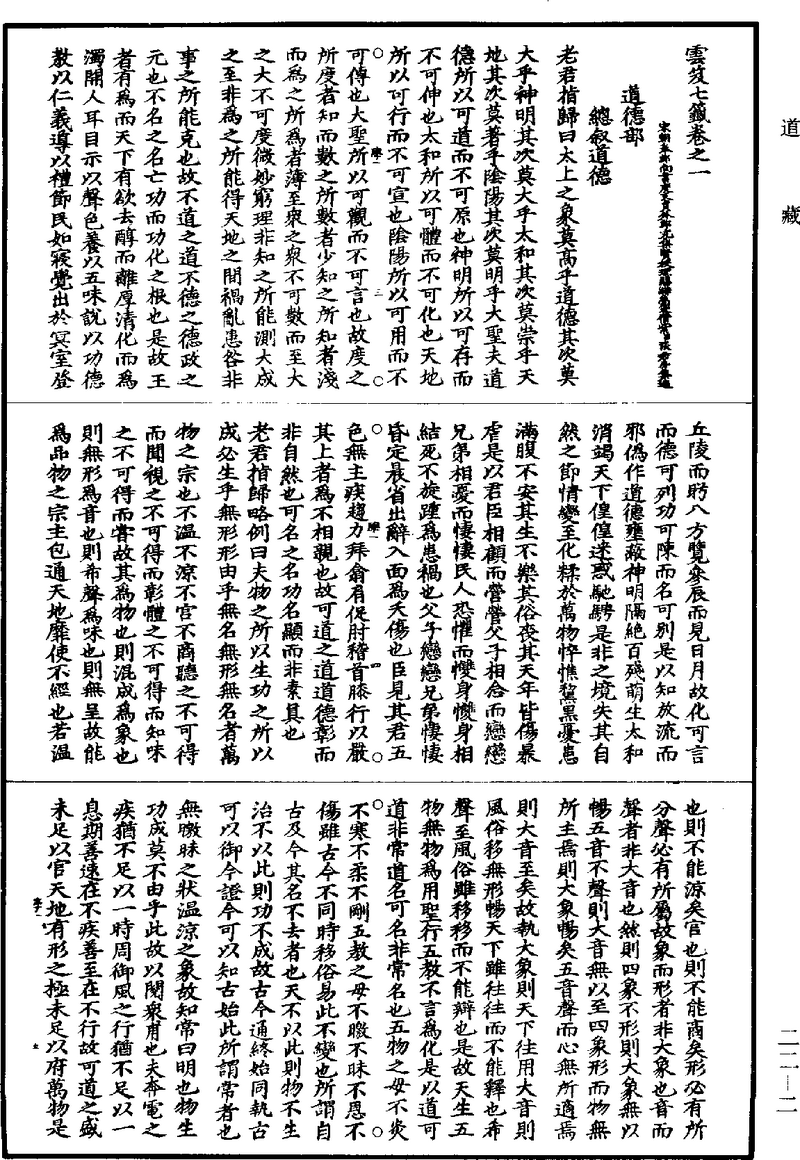 道藏
雲笈七籤卷之一
道德部
總叙道德
老君指歸曰太上之象莫高乎道德其次莫
大乎神明其次莫大乎太和其次莫崇乎天
地其次莫著乎陰陽其次莫明乎大聖夫道
德所以可道而不可原也神明所以可存而
不可伸也太和所以可體而不可化也天地
所以可行而不可宣也陰陽所以可用而不
可傳也大聖所以可觀而不可言也故度之
所度者知而數之所數者少知之所知者淺
而為之所為者薄至衆之衆不可數而至大
之大不可度微妙窮理非知之所能測大成
之至非為之所能得天地之間禍亂患咎非
事之所能克也故不道之道不德之德政之
元也不名之名亡功而功化之根也是故王
者有為而天下有欲去醇而離厚清化而為
濁開人耳目示以聲色養以五味說以功德
教以仁義導以禮節民如寢覺出於冥室登
丘陵而盻八方覽參辰而見日月故化可言
而德可列功可陳而名可別是以知放流而
邪偽作道德壅蔽神明隔絕百殘萌生太和
消竭天下偟偟迷惑馳騁是非之境失其自
然之節情變至化糅於萬物悴憔黧黑憂患
滿腹不安其生不樂其俗喪其天年皆傷暴
虐是以君臣相顧而營營父子相念而戀戀
兄弟相憂而悽悽民人恐懼而慞身慞身相
結死不旋踵為患禍也父子戀戀兄弟悽悽
昏定晨省出辭入面為夭傷也臣見其君五
色無主疾趨力拜翕肩促肘稽首膝行以嚴
其上者為不相親也故可道之道道德彰而
非自然也可名之名功名顯而非素真也
老君指歸略例曰夫物之所以生功之所以
成必生乎無形形由乎無名無形無名者萬
物之宗也不溫不涼不宮不商聽之不可得
而聞視之不可得而彰體之不可得而知味
之不可得而甞故其為物也則混成為象也
則無形為音也則希聲為味也則無呈故能
為品物之宗主包通天地靡使不經也若溫
也則不能涼矣宮也則不能商矣形必有所
分聲必有所屬故象而形者非大象也音而
聲者非大音也然則四象不形則大象無以
暢五音不聲則大音無以至四象形而物無
所主焉則大象暢矣五音聲而心無所適焉
則大音至矣故執大象則天下往用大音則
風俗移無形暢天下雖往往而不能釋也希
聲至風俗雖移移而不能辯也是故天生五
物無物為用聖行五教不言為化是以道可
道非常道名可名非常名也五物之母不炎
不寒不柔不剛五教之母不皦不昧不恩不
傷雖古今不同時移俗易此不變也所謂自
古及今其名不去者也天不以此則物不生
治不以此則功不成故古今通終始同執古
可以御今證今可以知古始此所謂常者也
無皦昧之狀溫涼之象故知常曰明也物生
功成莫不由乎此故以閱衆甫也夫奔電之
疾猶不足以一時周御風之行猶不足以一
息期善速在不疾善至在不行故可道之盛
未足以官天地有形之極未足以府萬物是